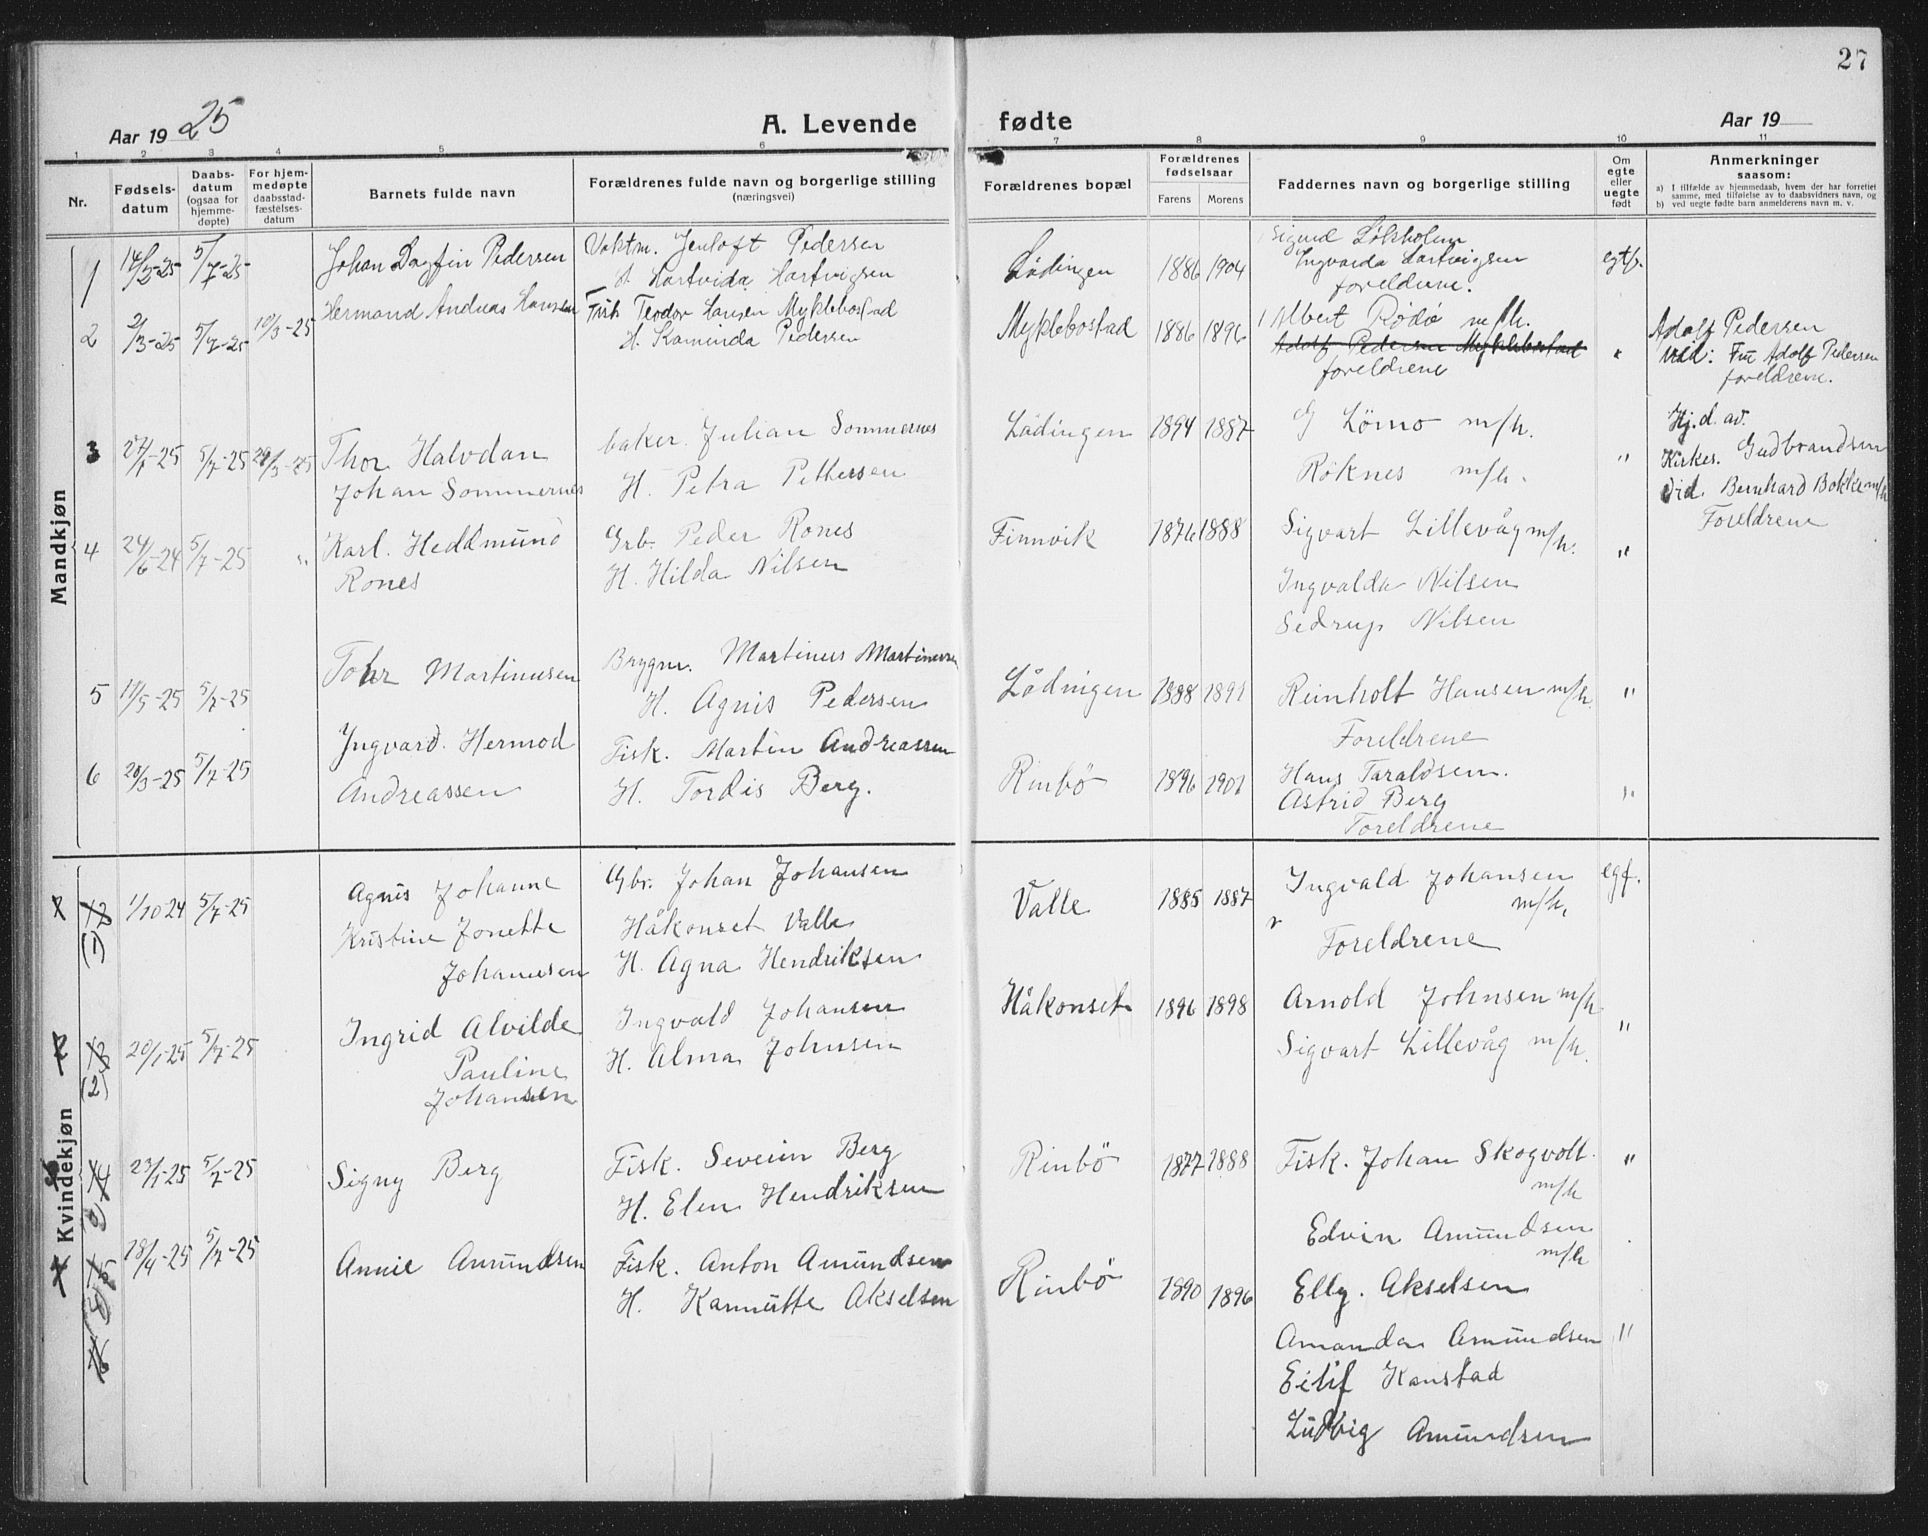 27
Aar 19 25
A. Levende fødte
Aar 19
1 2 3 4 5 6 7 8 9 10 11
Nr.
Fødsels-
datum
Daabs-
datum
(ogsaa for
hjemme-
døpte)
For hjem-
medøpte
daabsstad-
fæstelses-
datum
Barnets fulde navn
Forældrenes fulde navn og borgerlige stilling
(næringsvei)
Forældrenes bopæl
Forældrenes
fødselsaar
Farens Morens
Faddernes navn og borgerlige stilling
Om
egte
eller
uegte
født
Anmerkninger
saasom:
a) I tilfælde av hjemmedaab, hvem der har forrettet
samme, med tilføielse av to daabsvidners navn, og
b) ved uegte fødte barn anmelderens navn m. v.
Mandkjøn
1 14/2-25 5/7-25
Johan Dagfin Pedersen
Vaktm. Jenloft Pedersen
H. Hartvida Hartvigsen
Lödingen 1886 1904
Sigurd Lökholm
Ingvarda Hartvigsen
foreldrene.
egtf.
2 2/3-25 5/7-25 10/3-25
Hermand Andreas Hansen
Fisk Teodor Hansen Myklebostad
H. Kaminda Pedersen
Myklebostad 1886 1896
Albert Rödö m/h.
Adolf Pedersen Myklebostad
foreldrene
"
Adolf Pedersen
vid: Fru Adolf Pedersen
foreldrene.
3 27/1-25 5/7-25 29/3-25
Thor Halvdan
Johan Sommernes
baker. Julian Sommernes
H. Petra Pettersen
Lödingen 1894 1887
G Lömo m/h.
Röknes m/h.
"
Hj. d. av.
Kirkes. Gudbrandsen
Vid. Bernhard Bokke m/h
Foreldrene
4 24/6-24 5/7-25 "
Karl. Heddmund
Rones
Grb. Peder Rones
H. Hilda Nilsen
Finnvik 1876 1888
Sigvart Lillevåg m/h.
Ingvalda Nilsen
Sedrup Nilsen
"
5 11/5-25 5/7-25
Tohr Martinusen
Brygm. Martinus Martinusen
H. Agnis Pedersen
Lådingen 1888 1891
Reinholt Hansen m/h.
Foreldrene
"
6 20/3-25 5/7-25
Ingvard. Hermod
Andreassen
Fisk. Martin Andreassen
H. Tordis Berg.
Rinbö 1896 1901
Hans Taraldsen.
Astrid Berg
Foreldrene
"
Kvindekjøn
(1) 1/10-24 5/7-25
Agnis Johanne
Kristine Jonette
Johannesen
Gbr. Johan Johansen
Håkonset Valle
H. Agna Hendriksen
Valle 1885 1887
Ingvald Johansen
m/h,
Foreldrene
egf.
(2) 20/1-25 5/7-25
Ingrid Alvilde
Pauline
Johansen
Ingvald Johansen
H. Alma Johnsen
Håkonset 1896 1898
Arnold Johnsen m/h
Sigvart Lillevåg m/h.
"
23/1-25 5/7-25
Signy Berg
Fisk. Severin Berg
H. Elen Hendriksen
Rinbö 1877 1888
Fisk. Johan Skogvolt.
m/h
"
18/4-25 5/7-25
Annie Amundsen
Fisk. Anton Amundsen
H. Kannutte Akselsen
Rinbö 1890 1896
Edvin Amundsen
m/h
Elly. Akselsen
Amanda Amundsen
Eilif Kanstad
Ludvig Amundsen
"